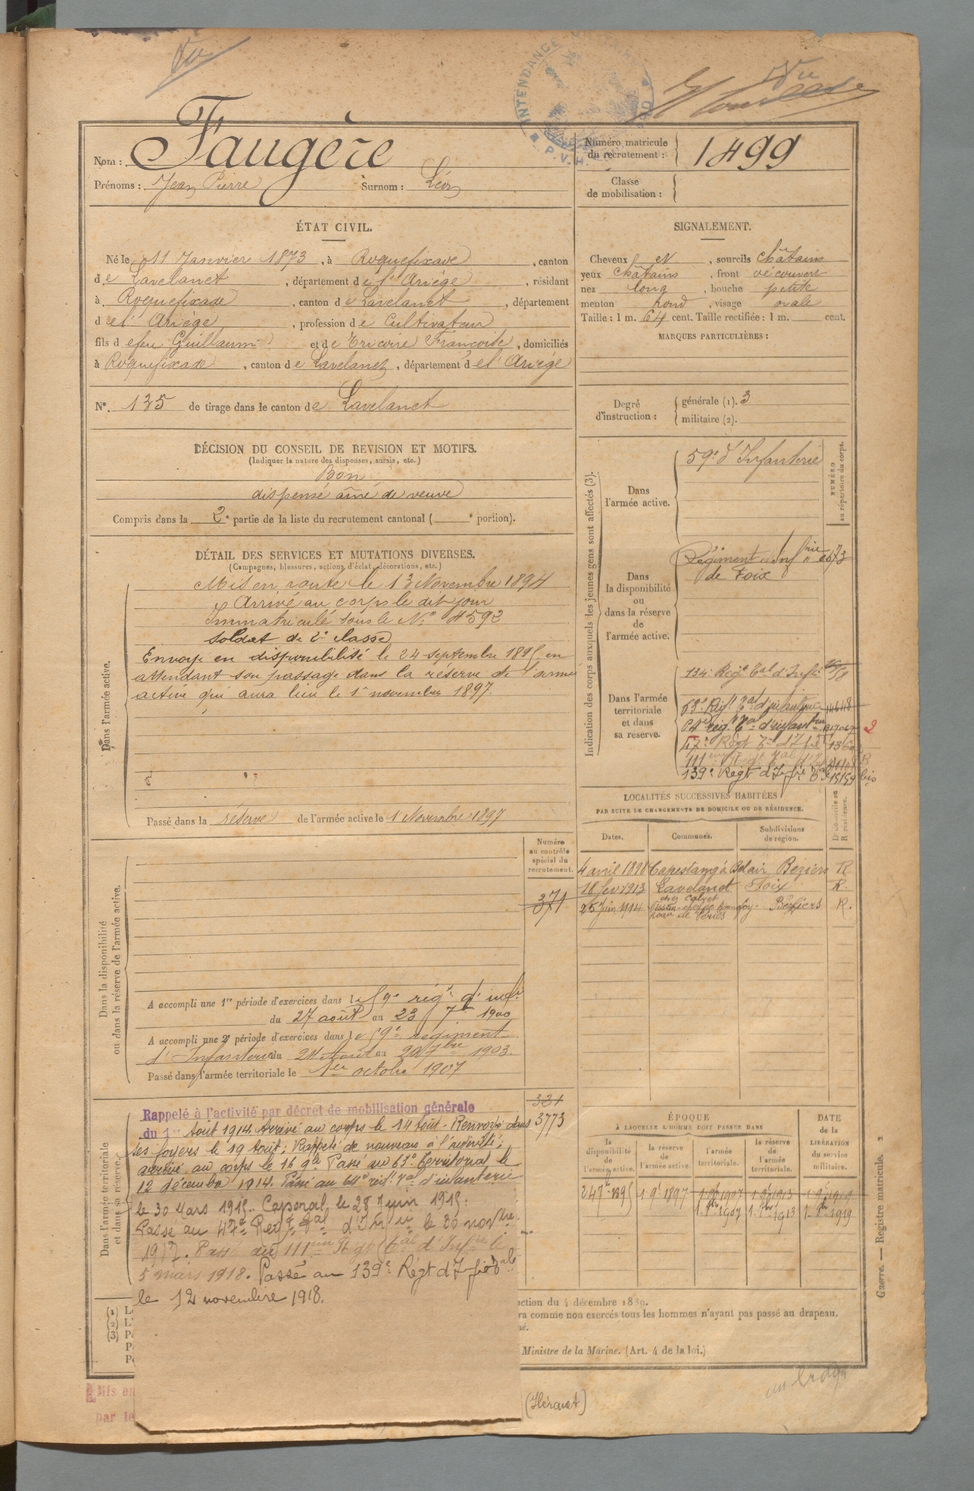 Vu
INTENDANCE
P.V.H.
Vu
Nom : Faugère
Prénoms : Jean Pierre Surnom : Léon
Numéro matricule du recrutement : 1499
Classe de mobilisation :
ÉTAT CIVIL.
Né le 11 Janvier 1873, à Roquefixade, canton
de Lavelanet, département de l'Ariège, résidant
à Roquefixade, canton de Lavelanet, département
de l'Ariège, profession de Cultivateur
fils de feu Guillaume et de Tricoire Françoise, domiciliés
à Roquefixade, canton de Lavelanet, département de l'Ariège
N°. 135 de tirage dans le canton de Lavelanet
SIGNALEMENT.
Cheveux et N, sourcils châtains
yeux châtains, front découvert
nez long, bouche petite
menton rond, visage ovale
Taille : 1 m. 64 cent. Taille rectifiée : 1 m. cent.
MARQUES PARTICULIÈRES :
Degré d'instruction : générale (1). 3
militaire (2).
DÉCISION DU CONSEIL DE REVISION ET MOTIFS.
(Indiquer la nature des dispenses, sursis, etc.)
Bon
dispensé aîné de veuve
Compris dans la 2e partie de la liste du recrutement cantonal ( e portion).
DÉTAIL DES SERVICES ET MUTATIONS DIVERSES.
(Campagnes, blessures, actions d'éclat, décorations, etc.)
Dans l'armée active.
Mis en route le 13 Novembre 1894
Arrivé au corps le dit jour
Immatriculé sous le N° 4592
soldat de 2e classe
Envoyé en disponibilité le 24 septembre 1895 en
attendant son passage dans la réserve de l'armée
active qui aura lieu le 1er novembre 1897.
Passé dans la réserve de l'armée active le 1 Novembre 1897
Indication des corps auxquels les jeunes gens sont affectés (3).
NUMÉRO au répertoire du corps.
Dans l'armée active.
59e d'Infanterie
Dans la disponibilité ou dans la réserve de l'armée active.
Régiment d'Infrie
de Foix
Dans l'armée territoriale et dans sa réserve.
134e Régt Tal d'Infie
139e Régt d'Infie
LOCALITÉS SUCCESSIVES HABITÉES
PAR SUITE DE CHANGEMENTS DE DOMICILE OU DE RÉSIDENCE.
Dates. Communes. Subdivisions de région.
4 avril 1898 Capestang Béziers R
18 fév 1913 Lavelanet Foix R.
25 Juin 1914 Béziers R.
Numéro au contrôle spécial du recrutement.
371
Dans la disponibilité ou dans la réserve de l'armée active.
A accompli une 1re période d'exercices dans le 59e régt d'infie
du 27 août au 23 7bre 1900
A accompli une 2e période d'exercices dans le 59e régiment
d'Infanterie du 24 Août au 20 7bre 1903.
Passé dans l'armée territoriale le 1er octobre 1907
Dans l'armée territoriale et dans sa réserve.
331
3773
Rappelé à l'activité par décret de mobilisation générale
du 1er Août 1914. Arrivé au corps le 14 Août. Renvoyé dans
ses foyers le 19 Août. Rappelé de nouveau à l'activité,
arrivé au corps le 16 9bre. Passé au 63e territorial le
12 décembre 1914. Passé au 64e régt Tal d'infanterie
le 30 Mars 1915. Caporal le 28 Juin 1915.
Passé au 47e Régt Tal d'Infie le 20 novbre
1917. Passé au 111ème Régt Tal d'Infie le
5 mars 1918. Passé au 139e Régt d'Infie Tale
le 12 novembre 1918.
ÉPOQUE
À LAQUELLE L'HOMME DOIT PASSER DANS
la disponibilité de l'armée active. la réserve de l'armée active. l'armée territoriale. la réserve de l'armée territoriale.
DATE de la LIBÉRATION du service militaire.
24 7bre 1895 1 9bre 1897 1 9bre 1907 1 9bre 1913 1 9bre 1919
1 8bre 1907 1 8bre 1913 1 8bre 1919
ction du 4 décembre 1889.
ra comme non exercés tous les hommes n'ayant pas passé au drapeau.
Ministre de la Marine. (Art. 4 de la loi.)
Guerre. — Registre matricule. 3
Mis en
par le
(Hérault)